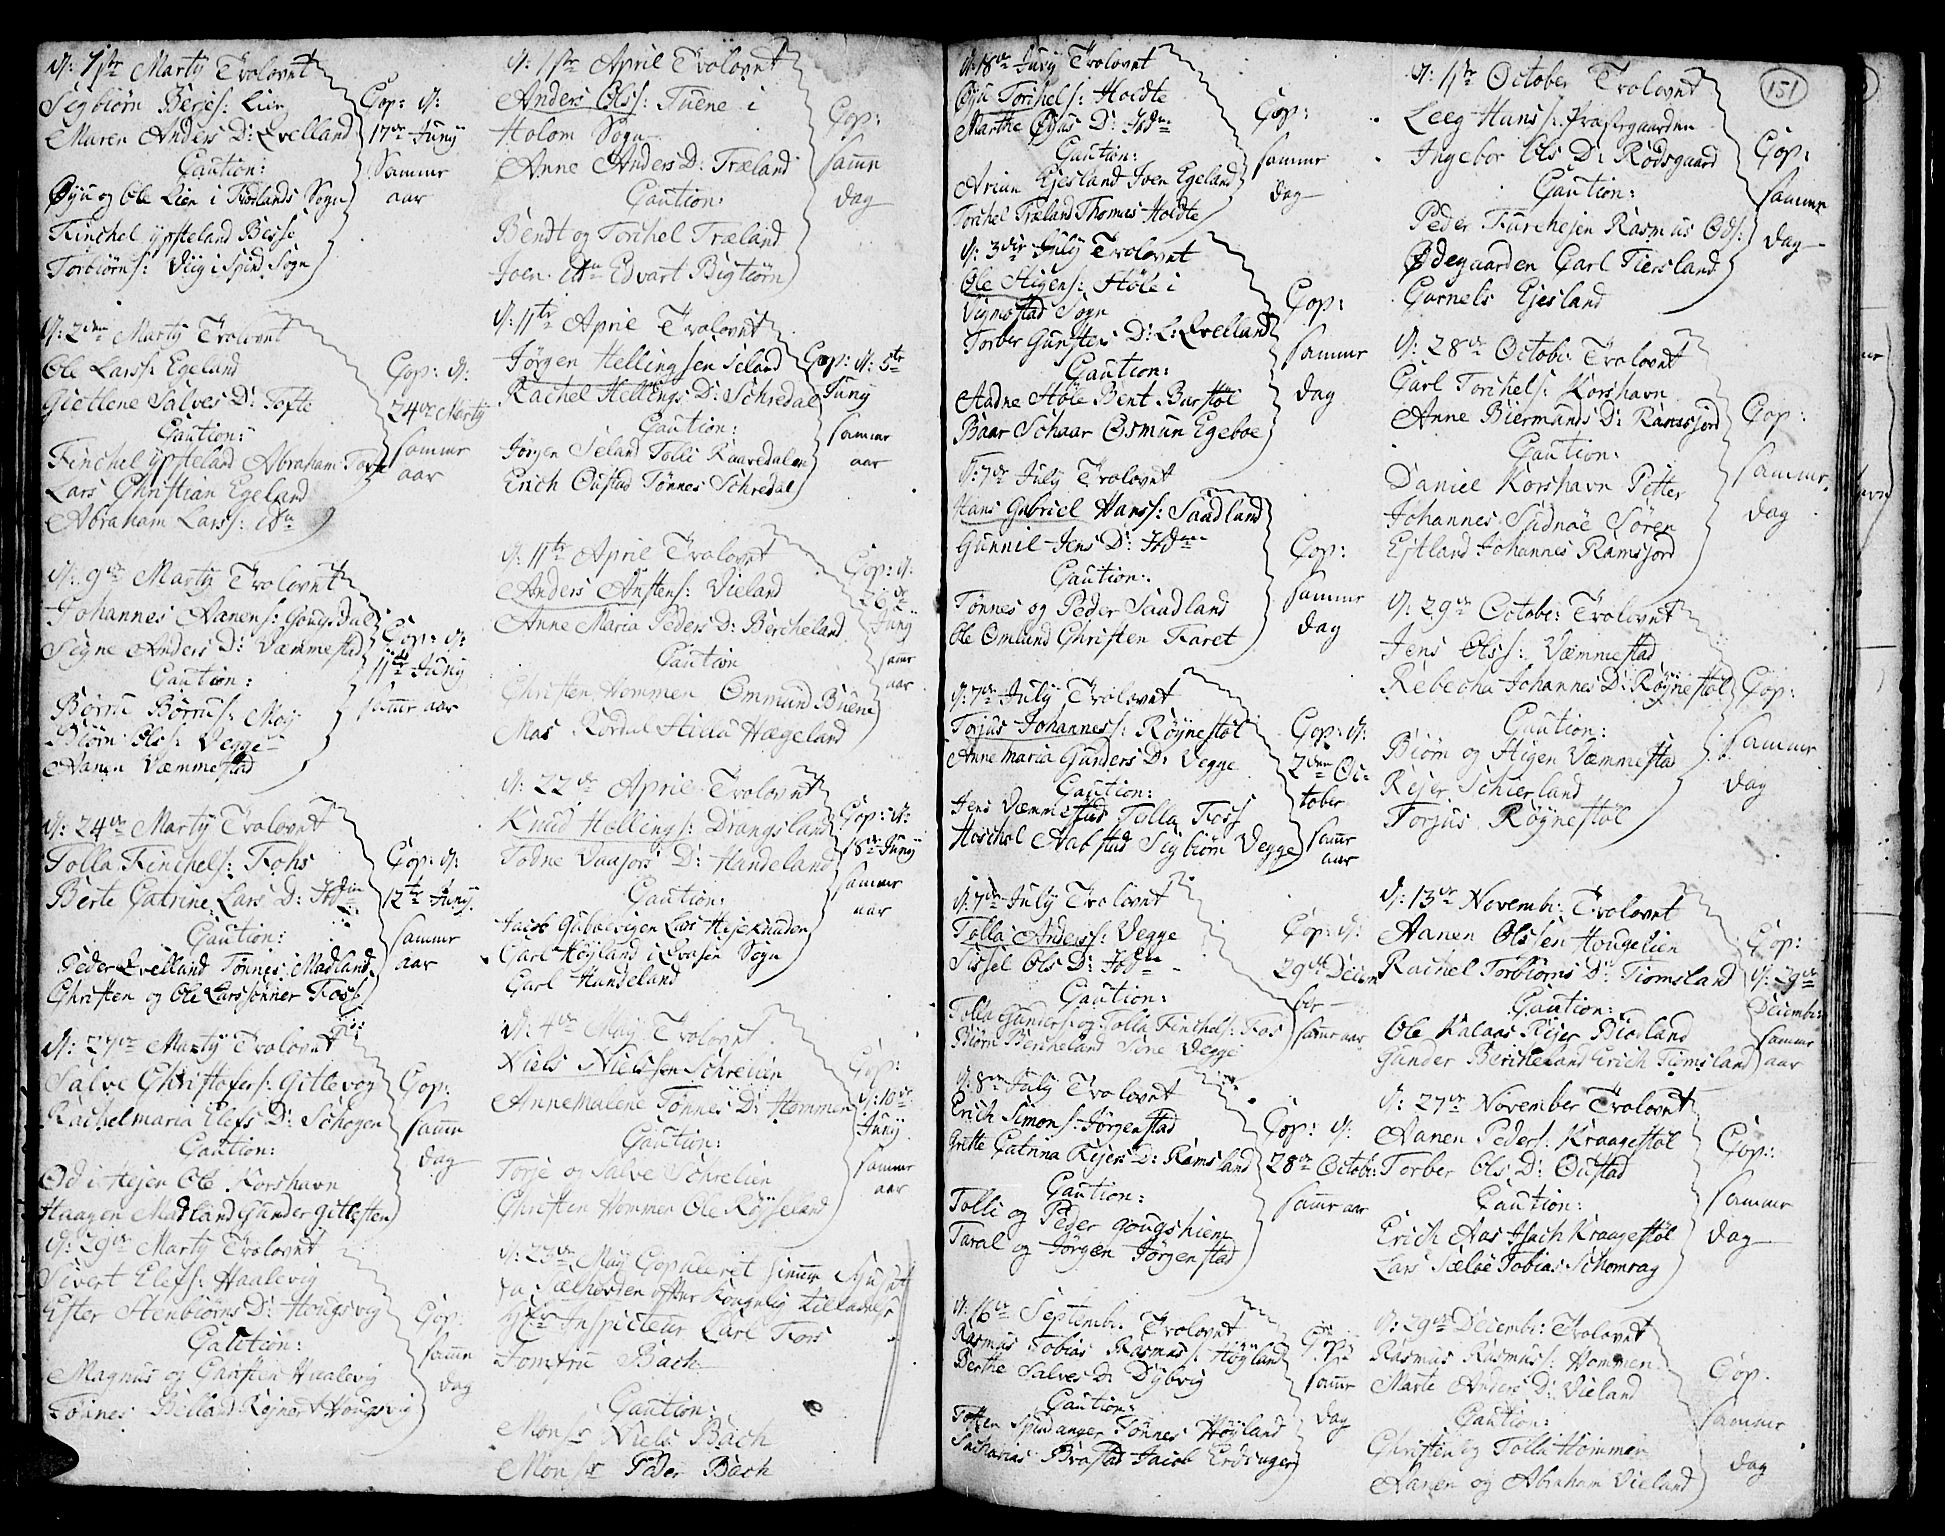 d: 1ste Martÿ Trolovet
Sigbiørn Berjes: Lien
Maren Anders D: Qvelland
Caution:
Øÿu og Ole Lien i Fosslands Sogn
Finchel ÿpsteland Besse
Torbiørns: Viig i Spind Sogn
Cop: d:
17de Junÿ
Sammr
aar
d: 2den Martÿ Trolovet
Ole Larss: Egeland
Giertene Salves D: Tofte
Caution:
Finchel ÿpsteland Abraham
Lars Christian Egeland
Abraham Larss: idn
Cop: d:
24de Martÿ
sammr
aar
d: 9de Martÿ Trolovet
Johannes Aanens:
Signe Anders D: Væmmestad
Caution:
Børru Børrus: Moÿ
Biørn Olss: Vegge
Aanen Væmmestad
Cop: d:
11te Junÿ
samr aar
d: 24de Martÿ Trolovet
Tolla Finchels: Fohs
Berte Catrine Lars D: Ibdm
Caution:
Peder Qvelland Tønnes Madland
Christen og Ole Larssønner Foss
Cop: d:
12te Junÿ
sammr
aar
d: 27de Martÿ Trolovet
Salve Christofers: Gitlevog
Rachelmaria Elefs D: Schogen
Caution:
Od i Hejen Ole Korshavn
Haagen Madland Gunder Gitlesten
Cop:
samm
dag
d: 29de Martÿ Trolovet
Sivert Elefs: Haalevig
Ester Stenbiørns D: Hougsvig
Caution:
Magnus og Christen Haalevig
Tønnes Billand Rejnert Hougsvig
Cop:
samm
dag
d: 1ste April Trolovet
Anders Olss: Tuene i
Holom Sogn
Anne Anders D: Træland
Caution:
Bendt og Torchel Træland
Joen idn Edvart Bigtiørn
Cop:
samm
dag
d: 11te April Trolovet
Jørgen Hellingsen Seland
Rachel Hellings D: Schredal
Caution:
Jørgen Seland Tolli Raavedalen
Erich Oustad Tønnes Schredal
Cop: d: 5te
Junÿ
sammr
aar
d: 11te April Trolovet
Anders Anstens: Vieland
Anne Maria Peders D: Bercheland
Caution
Christen Hommen Ommund Buene
Mas Rordal Hægeland
Cop: d:
Junÿ
samr
aar
d: 22de April Trolovet
Knud Hellings: Drangsland
Todne D: Handeland
Caution:
Jacob Gulvevigen Lars Heje Knuden
Carl Høÿland i Qvasin Sogn
Carl Handeland
Cop: d:
18de Junÿ
sammr
aar
d: 4de Maÿ Trolovet
Niels Nielssen Schrelien
Annemalene Tønnes D: Hommen
Caution:
Torje og Salve Schrelien
Christen Hommen Ole Røÿseland
Cop:
d: 10de
Junÿ
sammr
aar
d: 23de Maÿ Copuleeret
efter Kongelig Tilladelse
Inspecteur Carl Fors
Jomfrue Bach
Caution:
Monsr Niels Bach
Monsr Peder Bach
d: 18de Junÿ Trolovet
Øÿu Torchels: Holdte
Marthe Øÿus D: Ibdm
Caution:
Arian Ejesland Iven Egeland
Torchel Træland Thomas Holdte
Cop:
sammr
dag
d: 3die Julÿ Trolovet
Ole Higens: Høle i
Vigmostad Sogn
Torber Gunsten D: L: Qvelland
Caution:
Aadne Høle Bent Barstøl
Baar Schaar Osmun Egeboe
Cop:
sammr
dag
d: 7de Julÿ Trolovet
Hans Gabriel Hanss: Saadland
Gunnil Jens D: Ibdm
Caution:
Tønnes og Peder Saadland
Ole Omland Christen Faret
Cop:
sammr
dag
d: 7de Julÿ Trolovet
Torjus Johannes: Røÿnestøl
Anne maria Gunders D: Vegge
Caution:
Jens Væmmestad Tolla Foss
Hoschol Aabstad Sigbiørn Vegge
Cop: d:
2den Oc-
tober
samr
aar
d: 7de Julÿ Trolovet
Tolla Anders: Vegge
Sissel Ols D: Ibdm
Caution:
Tolla Gunders: og Tolla Finchels: Fos
Biørn Bercheland Sine Vegge
Cop: d:
29de Decem
ber
samr aar
d: 8de Julÿ Trolovet
Erich Simons: Jørgenstad
Grethe Catrina Rejers D: Ramsland
Caution:
Tolli og Peder gougshiem
Taral og Jørgen Jørgenstad
Cop: d:
28de Octobr:
samr aar
d: 16de Septembr. Trolovet
Rasmus Tobias Rasmuss: Høÿland
Berthe Salves D: Dÿbvig
Caution:
Spindanger Tønnes Høÿland
Sacharias Bråstad Jacob Erdinger
samr
dag
151
d: 11te October Trolovet
Leeg Hanss: Præstegaarden
Ingebor Ols D: Rødsgaard
Caution:
Peder Furehejen Rasmus Ods:
Ødegaarden Carl Tiersland
Cornels Ejesland
Cop:
sammr
dag
d: 28de Octobr: Trolovet
Carl Torchels: Korshavn
Anne Biermands D: Ramsjord
Caution:
Daniel Korshavn Peter
Johannes Sudnøe Søren
Ejtland Johannes Ramsjord
Cop:
sammr
dag
d: 29de Octobr: Trolovet
Jens Olss: Væmmestad
Rebecha Johannes D: Røÿnestøl
Caution:
Biørn og Higen Væmmestad
Rejer Schierland
Torjus Røÿnestøl
Cop:
sammr
dag
d: 13de Novembr: Trolovet
Aanen Olssen Hougelien
Rachel Torbiørns D: Tiomsland
Caution:
Ole Kalaas Rejer Biorland
Gunder Bercheland Erich Tiomsland
Cop:
d: 29de
Decembr:
sammr
aar
d: 27de November Trolovet
Aanen Peders: Kraagestøl
Torber Ols D: Oustad
Caution:
Erich Aas Isach Kraagestøl
Lars Sæløe Tobias Schomrag
Cop:
sammr
dag
d: 29de Decembr: Trolovet
Rasmus Rasmuss: Hommen
Marte Anders D: Vieland
Caution:
Christen og Tolla Hommen
Aanen og Abraham Vieland
Cop.
sammr
dag